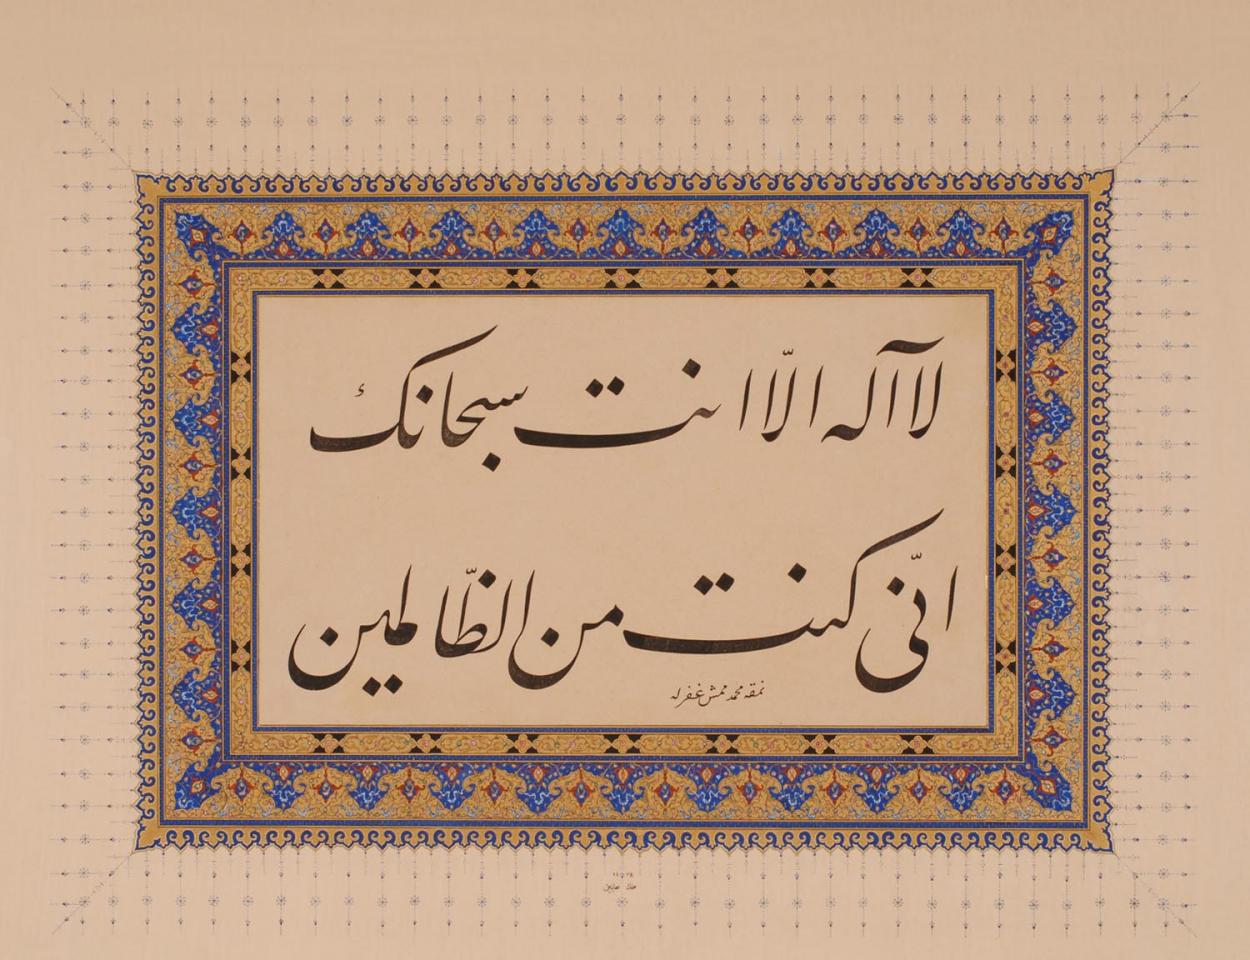 لا آله الّا انت سبحانك
انّی کنت من الظّالمین
نمقه محمد ممش غفر له